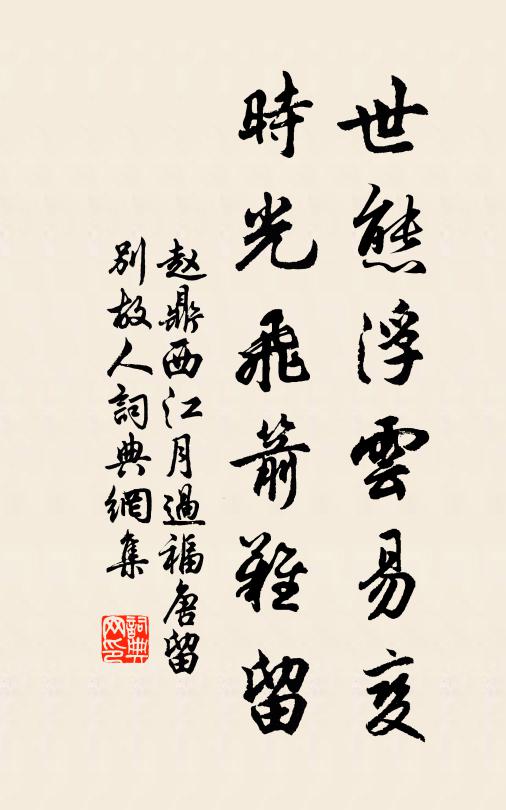 世態浮雲易变
時光飛箭難留
赵鼎西江月過福唐留
别故人詞典網集
詞典网印